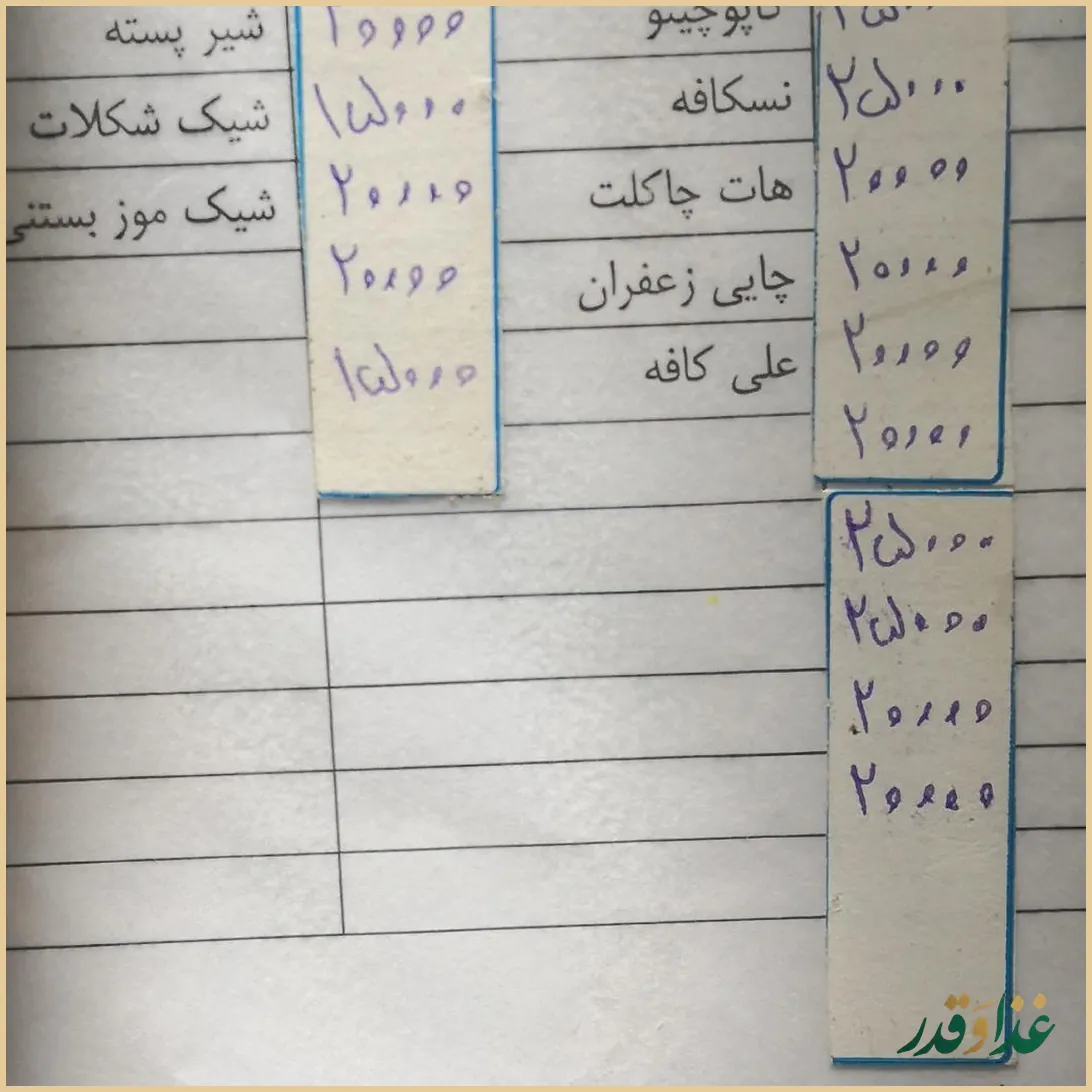 کاپوچینو شیر پسته
۲۵۰۰۰ نسکافه ۱۵۰۰۰ شیک شکلات
۲۰۰۰۰ هات چاکلت ۲۰۰۰۰ شیک موز بستنی
۲۰۰۰۰ چایی زعفران ۲۰۰۰۰
۲۰۰۰۰ علی کافه ۱۵۰۰۰
۲۰۰۰۰
۲۵۰۰۰
۲۵۰۰۰
۲۰۰۰۰
۲۰۰۰۰
غذا و قدر